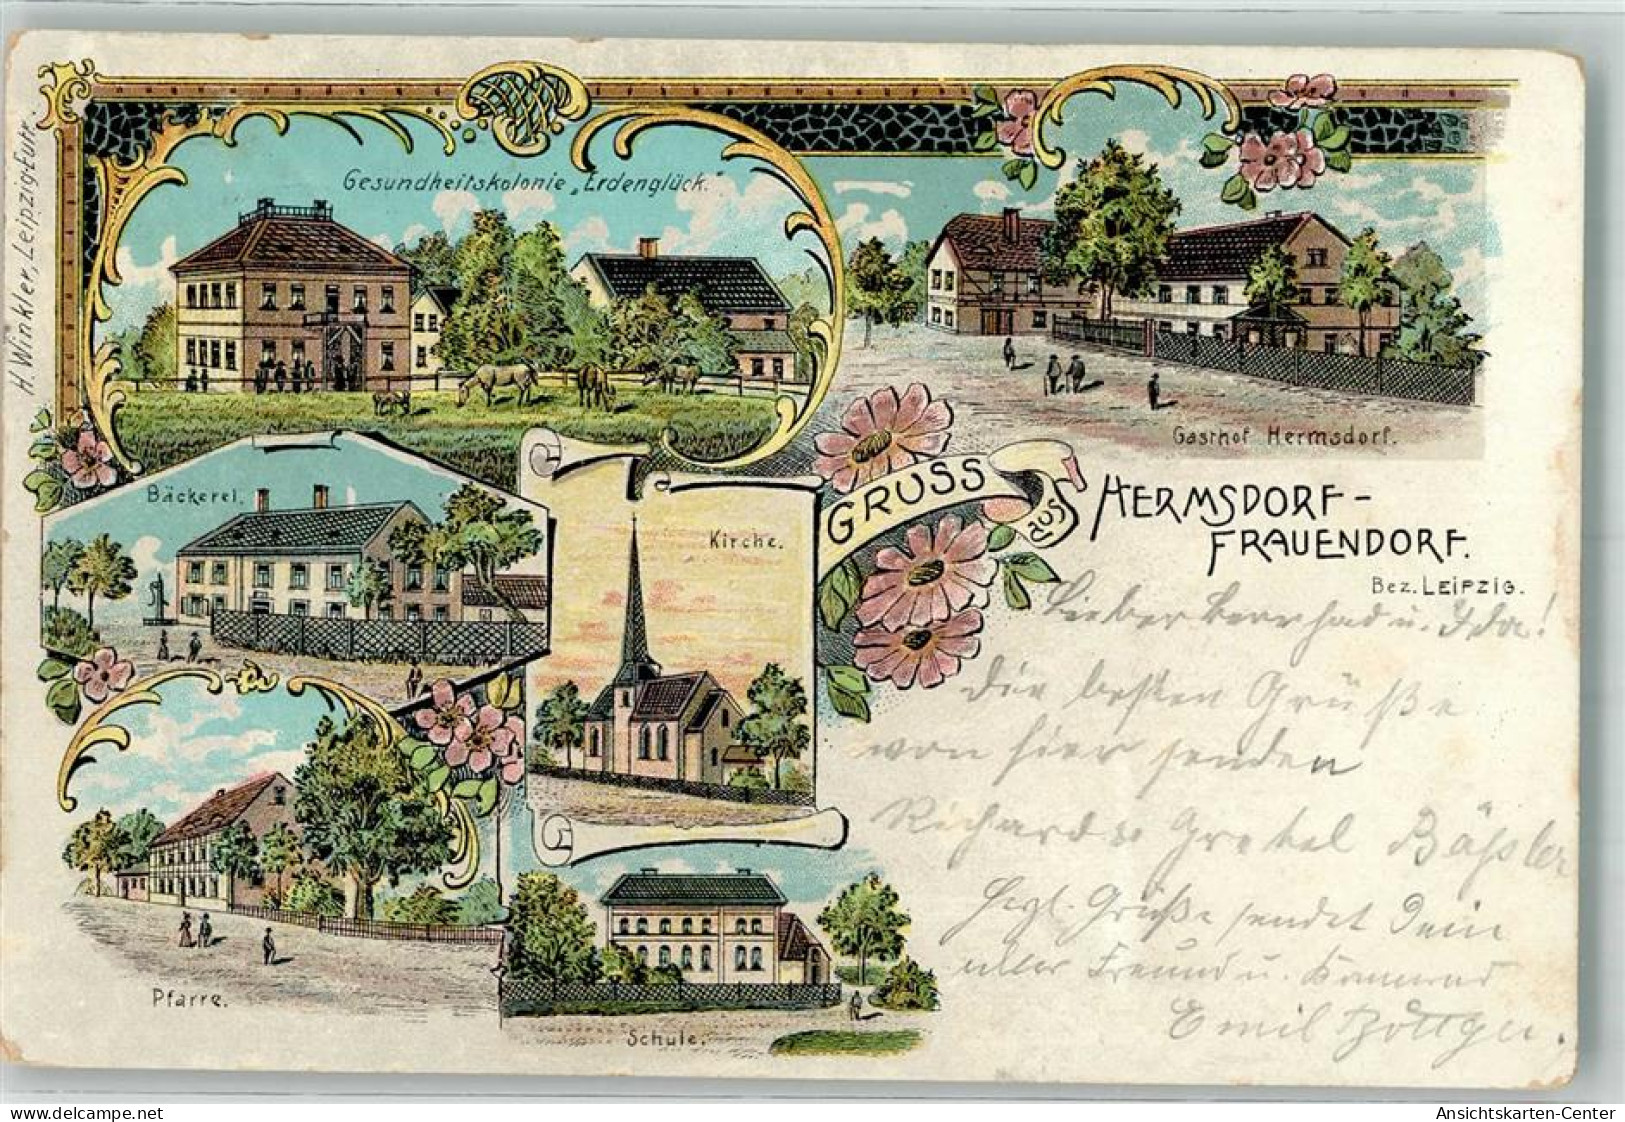 H. Winkler, Leipzig-Eutr.
Gesundheitskolonie „Erdenglück."
Gasthof Hermsdorf.
Bäckerei.
Kirche.
GRUSS
aus
HERMSDORF-
FRAUENDORF.
Bez. LEIPZIG.
Lieber Bernhard u. Ida!
Die besten Grüße
von hier senden
Richard u Gretel Bäßler
Hrzl. Grüße sendet Dein
alter Freund u. Kamerad
Emil Böttger.
Pfarre.
Schule.
delcampe.net
Ansichtskarten-Center